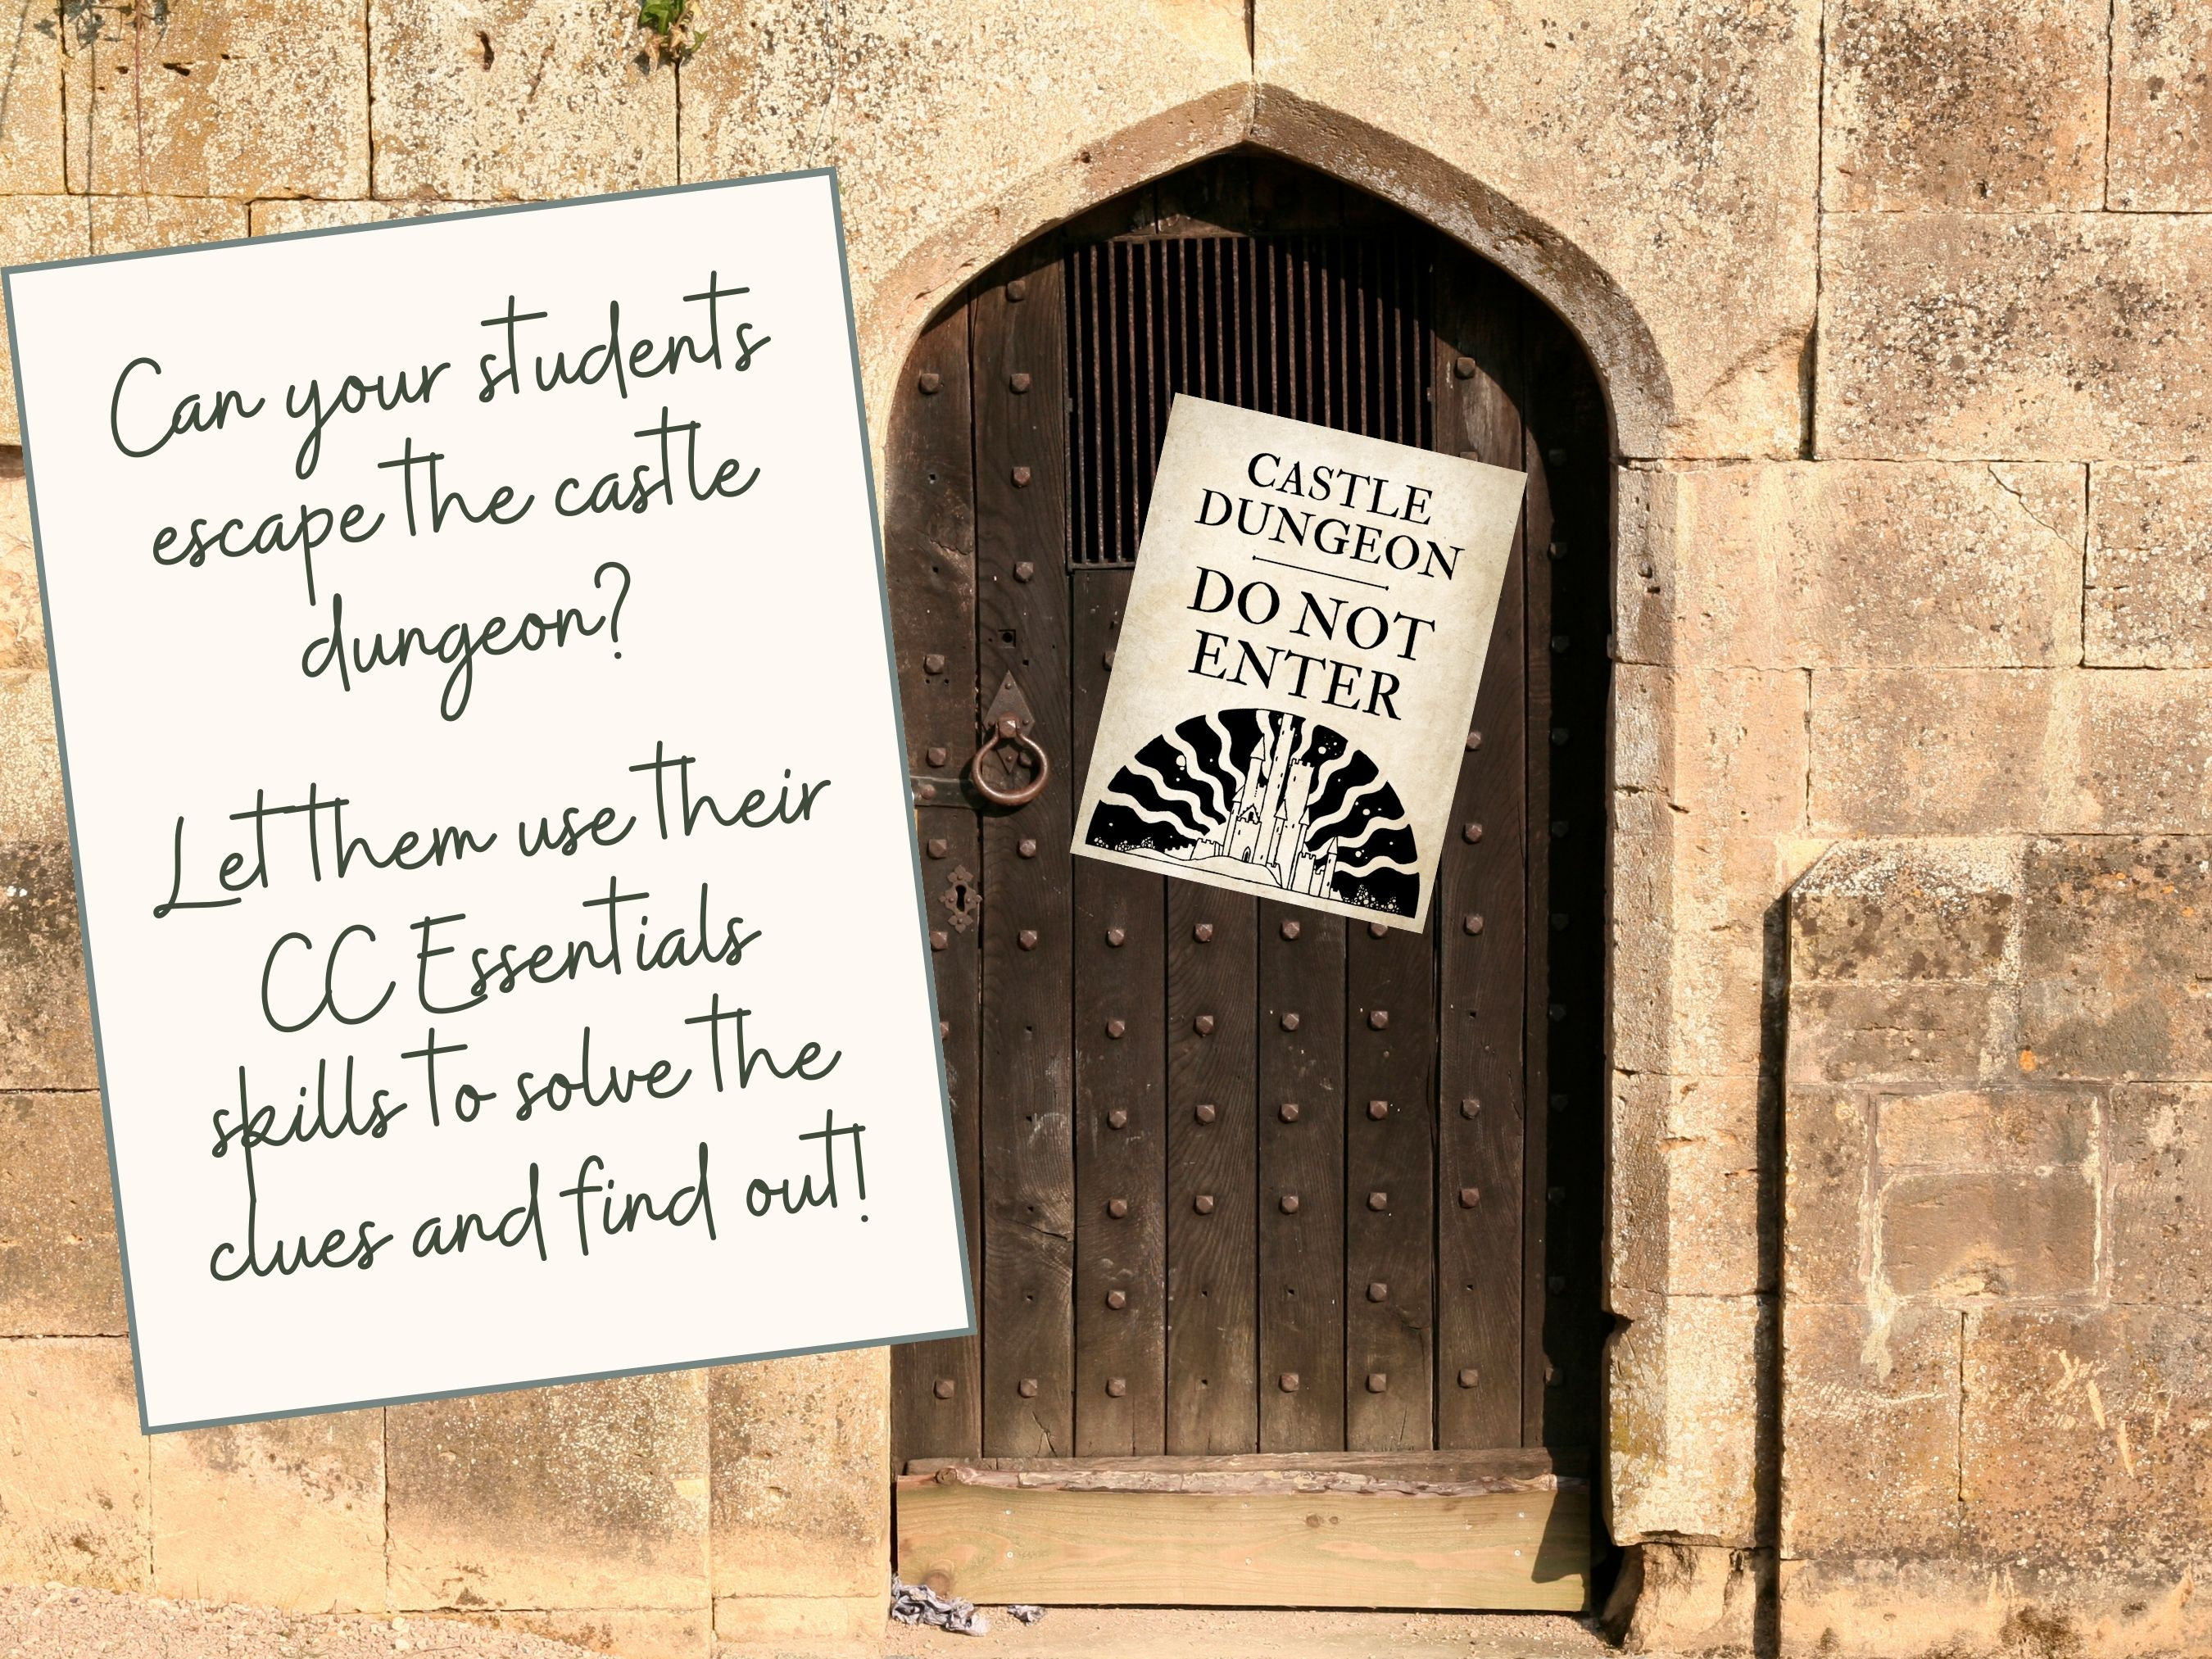 Can your students
escape the castle
dungeon?
Let them use their
CC Essentials
skills to solve the
clues and find out!
CASTLE
DUNGEON
DO NOT
ENTER